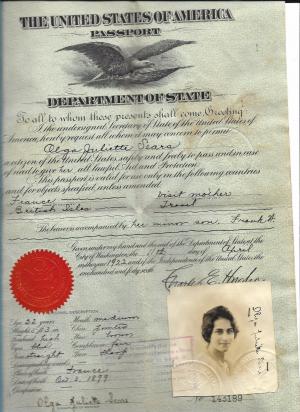 THE UNITED STATES OF AMERICA
PASSPORT
DEPARTMENT OF STATE
To all to whom these presents shall come, Greeting:
I the undersigned, Secretary of State of the United States of
America, hereby request all whom it may concern to permit
Olga Juliette Sears
a citizen of the United States safely and freely to pass and in case
of need to give her all lawful Aid and Protection.
This passport is valid for use only in the following countries
and for objects specified, unless amended.
France visit mother
British Isles Travel
The bearer is accompanied by her minor son, Frank
Given under my hand and the seal of the Department of State, at the
City of Washington, the day of April
in the year 1922 and of the Independence of the United States, the
one hundred and forty sixth.
Charles E. Hughes
DESCRIPTION
Age 22 years Mouth medium
Height Chin
Forehead high Hair brown
Eyes Complexion fair
Nose straight Face
France
1899
Olga Juliette Sears
No. 143189